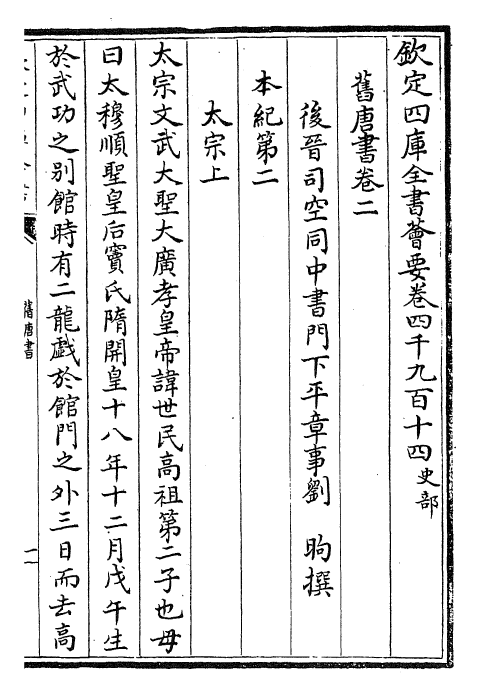 欽定四庫全書薈要卷四千九百十四史部
舊唐書卷二
後晉司空同中書門下平章事劉 昫撰
本紀第二
太宗上
太宗文武大聖大廣孝皇帝諱世民高祖第二子也母
曰太穆順聖皇后竇氏隋開皇十八年十二月戊午生
於武功之别館時有二龍戲於館門之外三日而去高
舊唐書
一